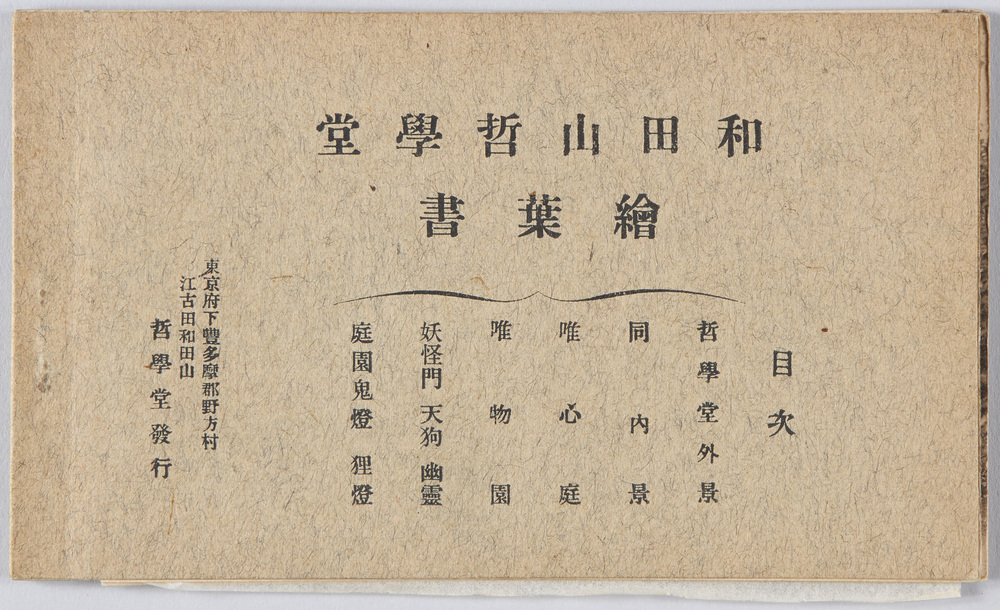 和田山哲學堂
繪葉書
目次
哲學堂外景
同內景
唯心庭
唯物園
妖怪門 天狗 幽靈
庭園鬼燈 狸燈
東京府下豐多摩郡野方村
江古田和田山
哲學堂發行